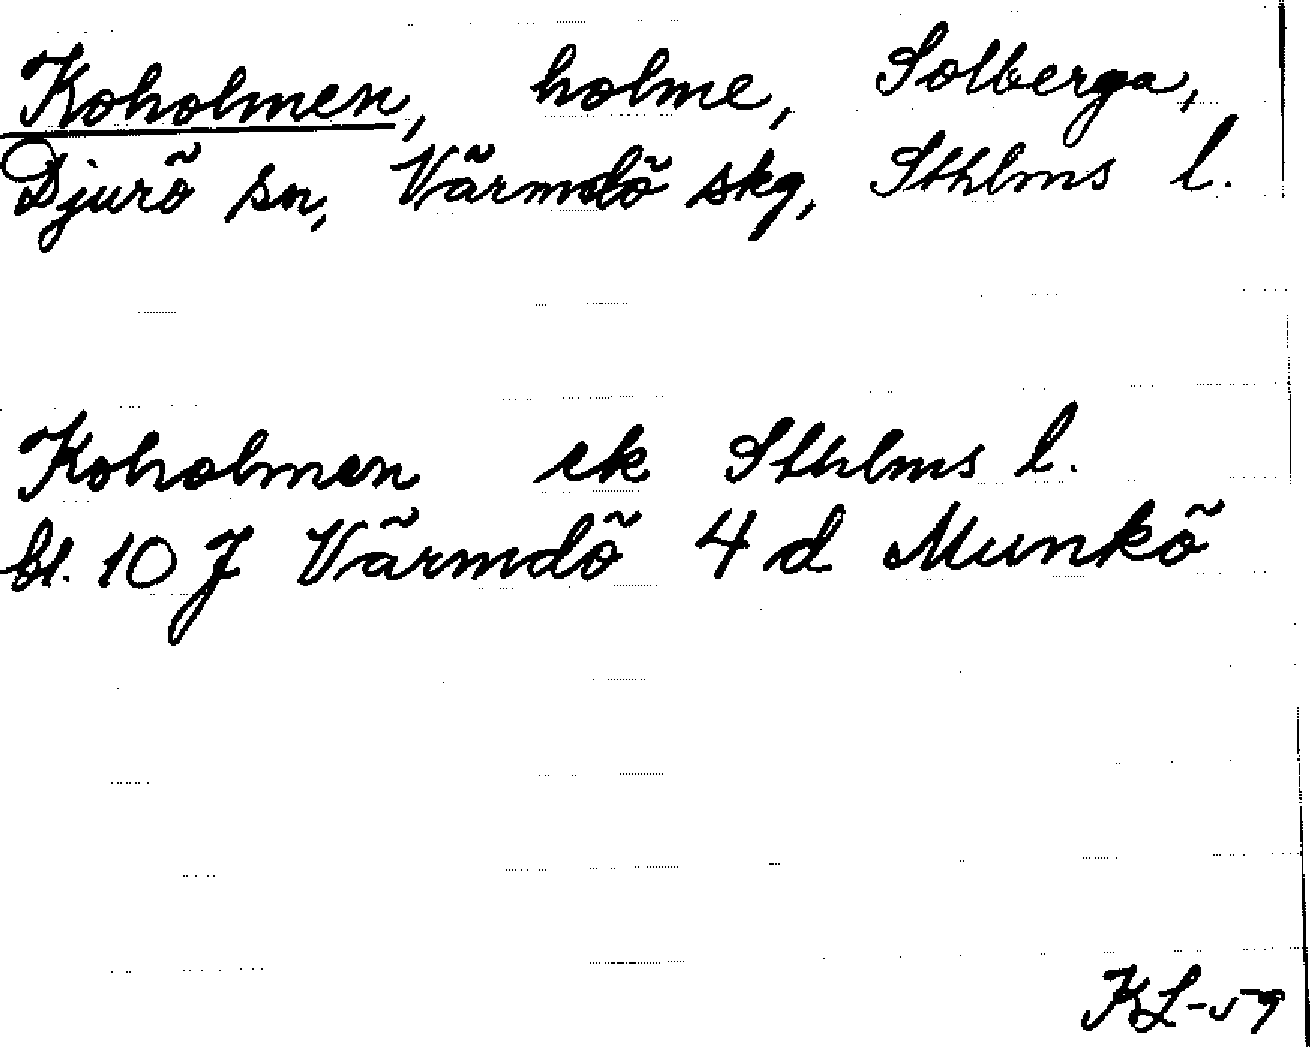 Koholmen, holme, Solberga,
Djurö sn, Värmdö skg, Sthlms l.
Koholmen ek Sthlms l.
bl. 10 J Värmdö 4 d Munkö
KL-59